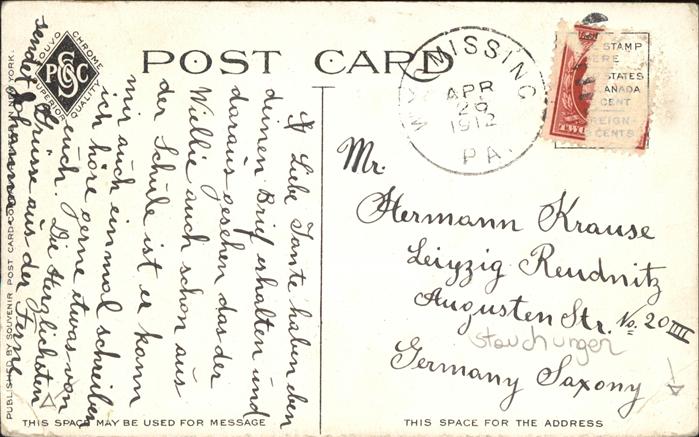 POST CARD
PHOTO CHROME
PCSC
SUPERIOR QUALITY
PUBLISHED BY SOUVENIR POST CARD CO. NEW YORK.
WYOMISSING
APR
26
1912
PA.
STAMP
ERE
STATES
AÑADA
CENT
REIGN
CENTS
Liebe Tante haben eben
deinen Brief erhalten und
daraus gesehen das der
Willie auch schon aus
der Schule ist er kann
mir auch einmal schreiben
ich höre gerne etwas von
euch. Die Herzlichsten
Grüsse aus der Ferne
sendet Johanna
Mr.
Hermann Krause
Leipzig Reudnitz
Augusten Str. No. 20 III
Germany Saxony
THIS SPACE MAY BE USED FOR MESSAGE
THIS SPACE FOR THE ADDRESS